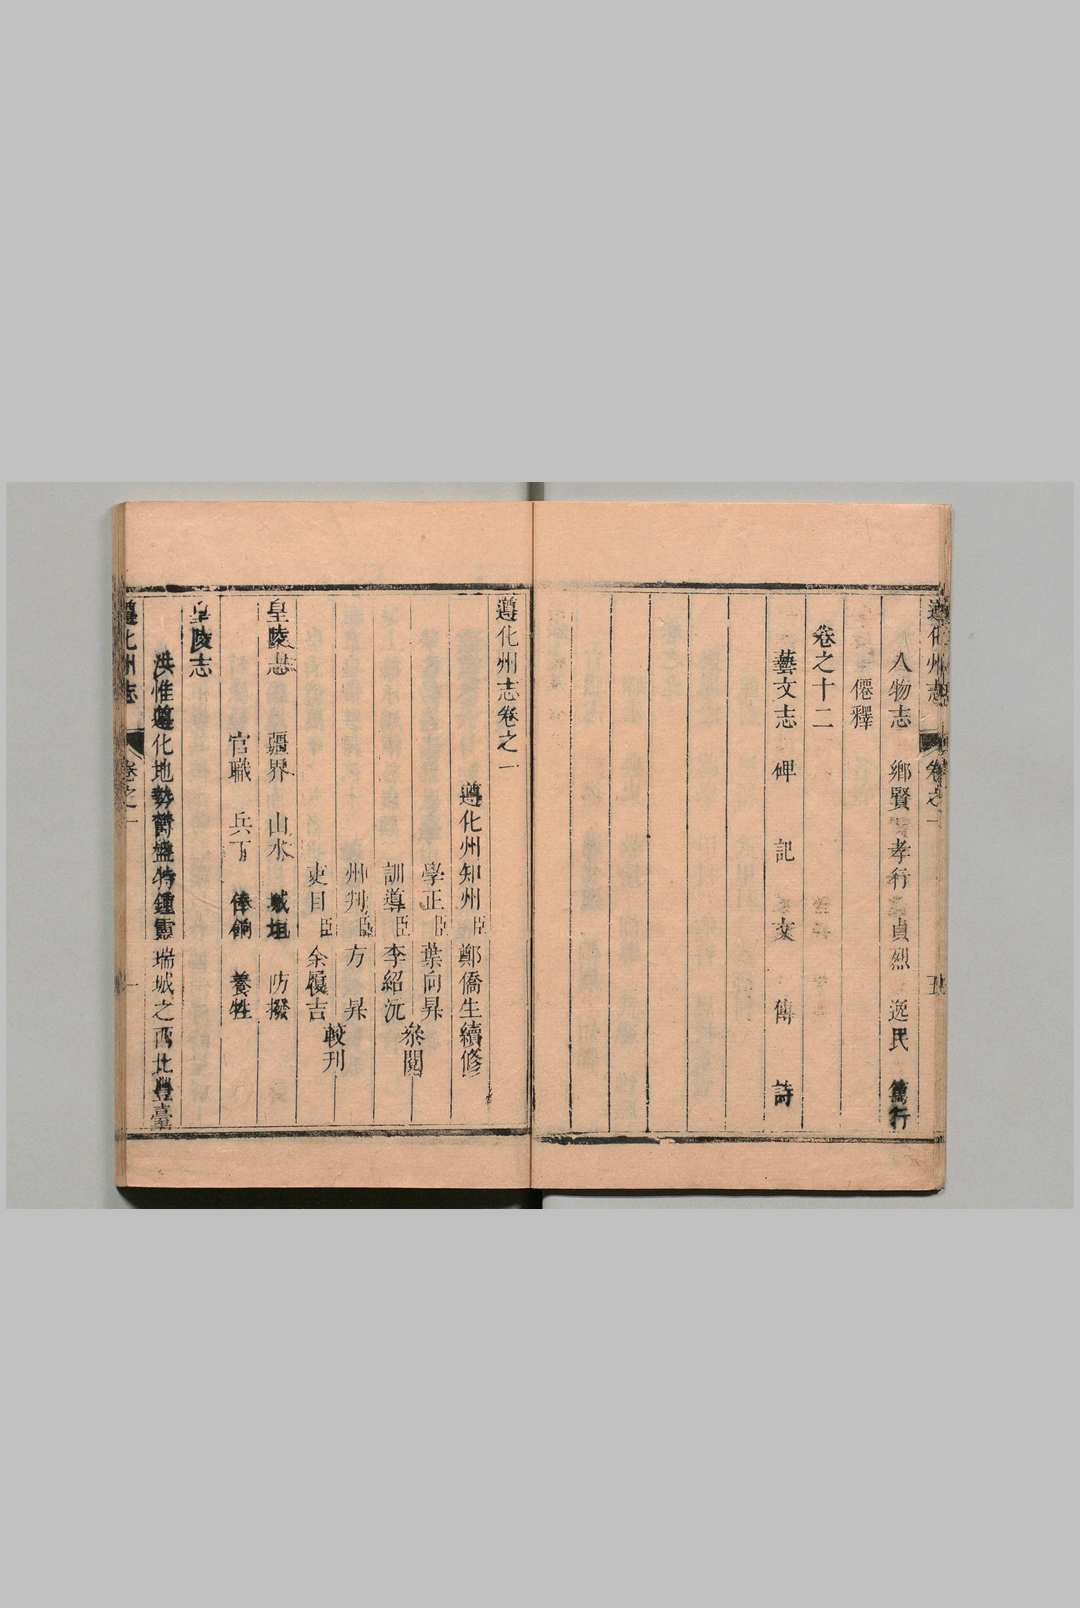 遵化州志 卷之一 五
人物志 鄉賢 孝行 貞烈 逸民 篤行
僊釋
卷之十二
藝文志 碑 記 文 傳 詩
遵化州志卷之一
遵化州知州臣鄭僑生續修
學正臣葉向昇
訓導臣李紹沆
叅閱
州判臣方昇
吏目臣余履吉
較刊
皇陵志 疆界 山水 城垣 防撥
官職 兵丁 俸餉 養牲
皇陵志
洪惟遵化地勢欝盤特鍾靈瑞城之西北豐臺
遵化州志 卷之一 一